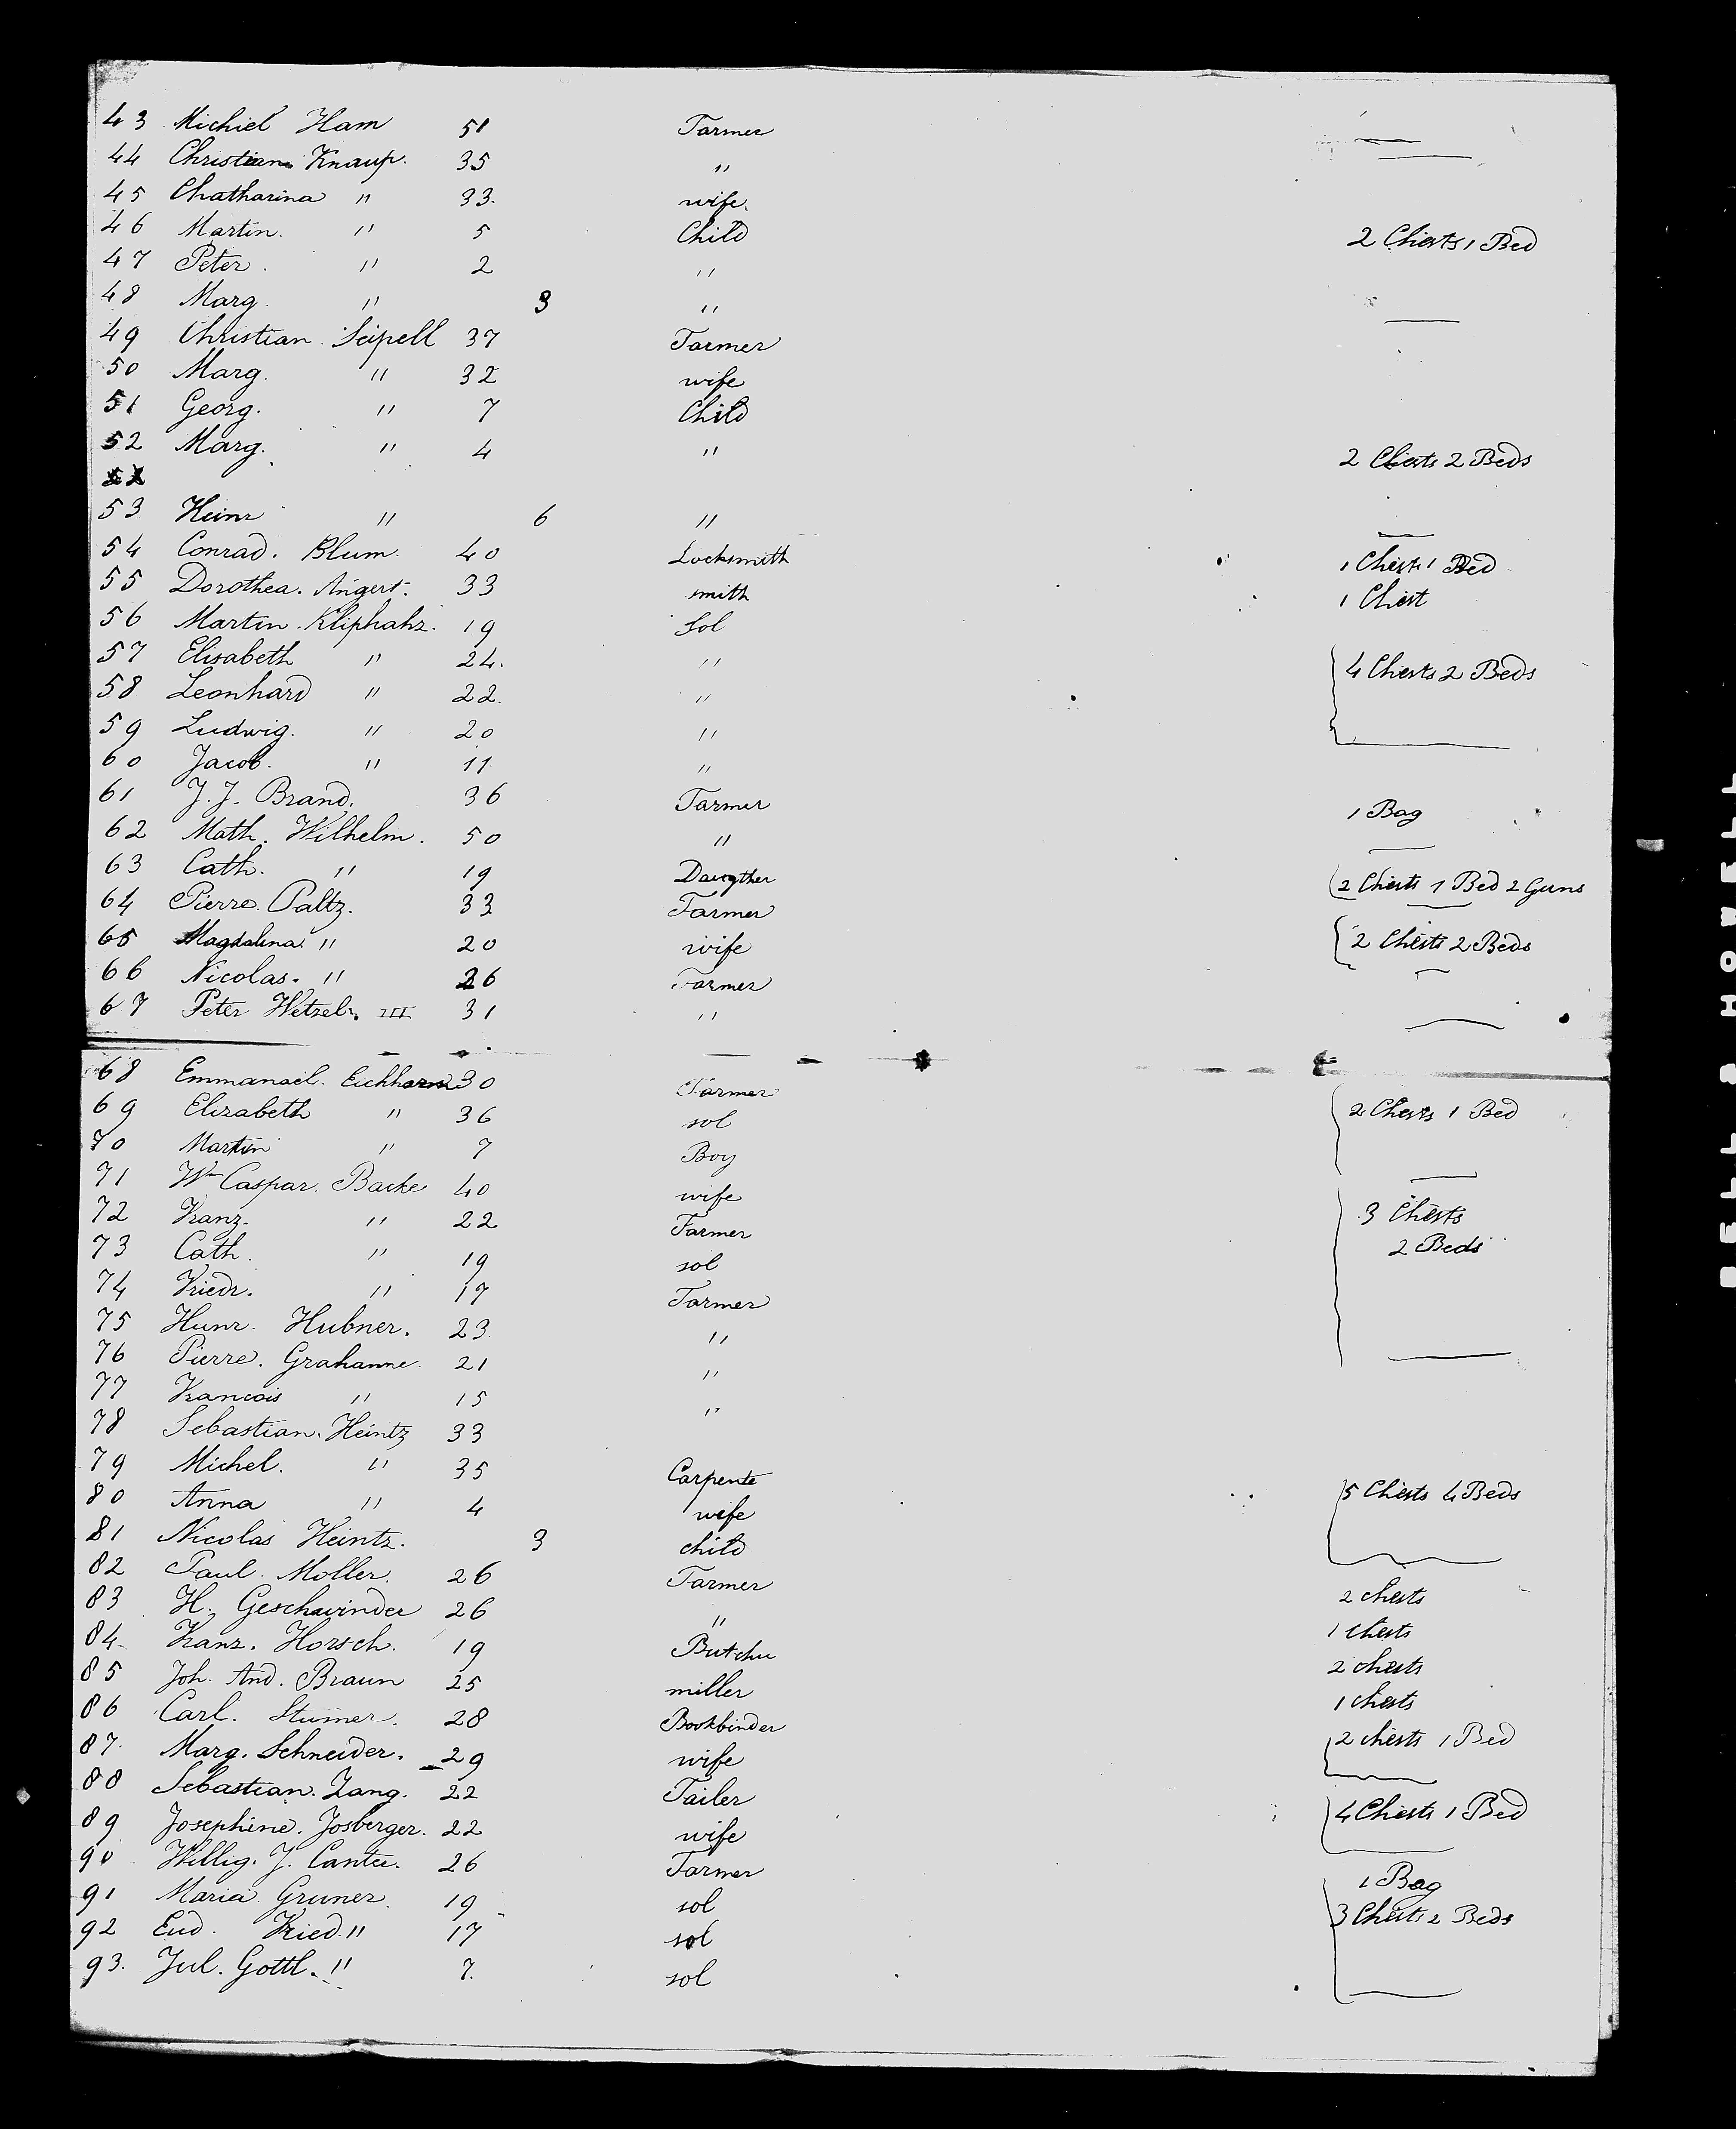 43 Michiel Ham 51 Farmer
44 Christian Knaup. 35 "
45 Chatharina " 33. wife
46 Martin. " 5 Child 2 Chests 1 Bed
47 Peter. " 2 "
48 Marg " 3 "
49 Christian Seipell 37 Farmer
50 Marg. " 32 wife
51 Georg. " 7 Child
52 Marg. " 4 " 2 Chests 2 Beds
53 Heinr " 6 "
54 Conrad. Blum. 40 Locksmith 1 Chest 1 Bed
55 Dorothea. Angert. 33 smith 1 Chest
56 Martin. Kliphahz. 19 Sol
57 Elisabeth " 24. " 4 Chests 2 Beds
58 Leonhard " 22. "
59 Ludwig. " 20 "
60 Jacob. " 11 "
61 J. J. Brand. 36 Farmer 1 Bag
62 Math. Wilhelm. 50 "
63 Cath. " 19 Daugther 2 Chests 1 Bed 2 Guns
64 Pierre. Paltz. 33 Farmer
65 Magdalina " 20 wife 2 Chests 2 Beds
66 Nicolas. " 26 Farmer
67 Peter Wetzel. III 31 "
68 Emmanoel. Eichhorn 30 Farmer
69 Elizabeth " 36 sol 2 Chests 1 Bed
70 Martin " 7 Boy
71 Wm Caspar. Backe 40 wife
72 Franz. " 22 Farmer 3 Chests
73 Cath. " 19 sol 2 Beds
74 Friedr. " 17 Farmer
75 Heinr. Hubner. 23 "
76 Pierre. Grahanne. 21 "
77 Francois " 15 "
78 Sebastian. Heintz 33
79 Michel. " 35 Carpente
80 Anna " 4 wife 5 Chests 4 Beds
81 Nicolas Heintz. 3 child
82 Paul. Moller. 26 Farmer 2 chests
83 H. Geschwinder 26 " 1 chests
84 Franz. Horsch. 19 Butcher 2 chests
85 Joh. And. Braun 25 miller 1 chests
86 Carl. Stumer. 28 Bookbinder 2 chests 1 Bed
87. Marg. Schneider. 29 wife
88 Sebastian. Zang. 22 Tailer 4 Chests 1 Bed
89 Josephine. Josberger. 22 wife
90 Willig. J. Canter. 26 Farmer 1 Bag
91 Maria. Gruner 19 sol 3 Chests 2 Beds
92 Eud. Fried. " 17 sol
93. Jul. Gottl. " 7. sol
BELL & HOWELL